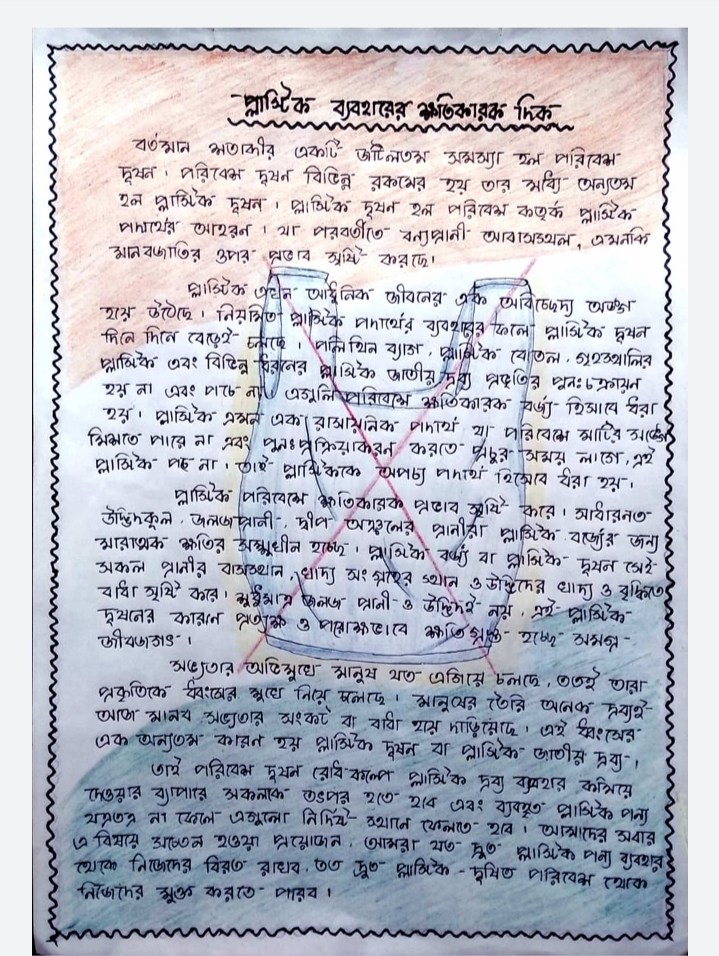 প্লাস্টিক ব্যবহারের ক্ষতিকারক দিক
বর্তমান শতাব্দীর একটি জটিলতম সমস্যা হল পরিবেশ
দূষণ। পরিবেশ দূষণ বিভিন্ন রকমের হয় তার মধ্যে অন্যতম
হল প্লাস্টিক দূষন। প্লাস্টিক দূষন হল পরিবেশ কর্তৃক প্লাস্টিক
পদার্থের আহরন। যা পরবর্তীতে বন্যপ্রানী আবাসস্থল, এমনকি
মানবজাতির ওপর প্রভাব সৃষ্টি করছে।
প্লাস্টিক এখন আধুনিক জীবনের এক অবিচ্ছেদ্য অঙ্গ
হয়ে উঠেছে। নিয়মিত প্লাস্টিক পদার্থের ব্যবহারের ফলে প্লাস্টিক দূষন
দিনে দিনে বেড়েই চলছে। পলিথিন ব্যাগ, প্লাস্টিক বোতল, গৃহস্থালির
প্লাস্টিক এবং বিভিন্ন ধরনের প্লাস্টিক জাতীয় দ্রব্য প্রভৃতির পুনঃচক্রায়ন
হয় না এবং পচে না। এগুলি পরিবেশে ক্ষতিকারক বর্জ্য হিসাবে ধরা
হয়। প্লাস্টিক এমন এক রাসায়নিক পদার্থ যা পরিবেশে মাটির সঙ্গে
মিশতে পারে না এবং পুনঃপ্রক্রিয়াকরন করতে প্রচুর সময় লাগে, এই
প্লাস্টিক পচে না। তাই প্লাস্টিককে অপচ্য পদার্থ হিসেবে ধরা হয়।
প্লাস্টিক পরিবেশে ক্ষতিকারক প্রভাব সৃষ্টি করে। সাধারনত
উদ্ভিদকূল, জলজপ্রানী, দ্বীপ অঞ্চলের প্রানীরা প্লাস্টিক বর্জ্যের জন্য
মারাত্মক ক্ষতির সম্মুখীন হচ্ছে। প্লাস্টিক বর্জ্য বা প্লাস্টিক দূষন সেই
সকল প্রানীর বাসস্থান, খাদ্য সংগ্রহের স্থান ও উদ্ভিদের খাদ্য ও বৃদ্ধিতে
বাধা সৃষ্টি করে। শুধুমাত্র জলজ প্রানী ও উদ্ভিদই নয়, এই প্লাস্টিক
দূষনের কারনে প্রত্যক্ষ ও পরোক্ষভাবে ক্ষতিগ্রস্ত হচ্ছে সমগ্র
জীবজগৎ।
সভ্যতার অভিমুখে মানুষ যত এগিয়ে চলছে, ততই তারা
প্রকৃতিকে ধ্বংসের মুখে নিয়ে চলছে। মানুষের তৈরি অনেক দ্রব্যই
আজ মানব সভ্যতার সংকট বা বাধা হয়ে দাড়িয়েছে। এই ধ্বংসের
এক অন্যতম কারন হয় প্লাস্টিক দূষন বা প্লাস্টিক জাতীয় দ্রব্য।
তাই পরিবেশ দূষন রোধ কল্পে প্লাস্টিক দ্রব্য ব্যবহার কমিয়ে
দেওয়ার ব্যাপারে সকলকে তৎপর হতে হবে এবং ব্যবহৃত প্লাস্টিক পন্য
যত্রতত্র না ফেলে এগুলো নির্দিষ্ট স্থানে ফেলতে হবে। আমাদের সবার
এ বিষয়ে সচেতন হওয়া প্রয়োজন, আমরা যত দ্রুত প্লাস্টিক পন্য ব্যবহার
থেকে নিজেদের বিরত রাখব, তত দ্রুত প্লাস্টিক - দূষিত পরিবেশ থেকে
নিজেদের মুক্ত করতে পারব।